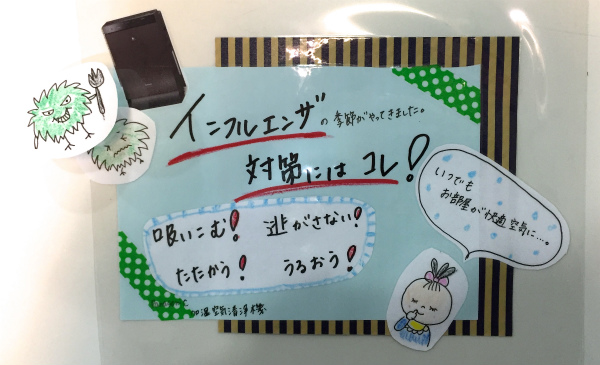 インフルエンザの季節がやってきました。
対策にはコレ!
吸いこむ! 逃がさない!
たたかう! うるおう!
加湿空気清浄機
いつでも
お部屋が快適空気に…。